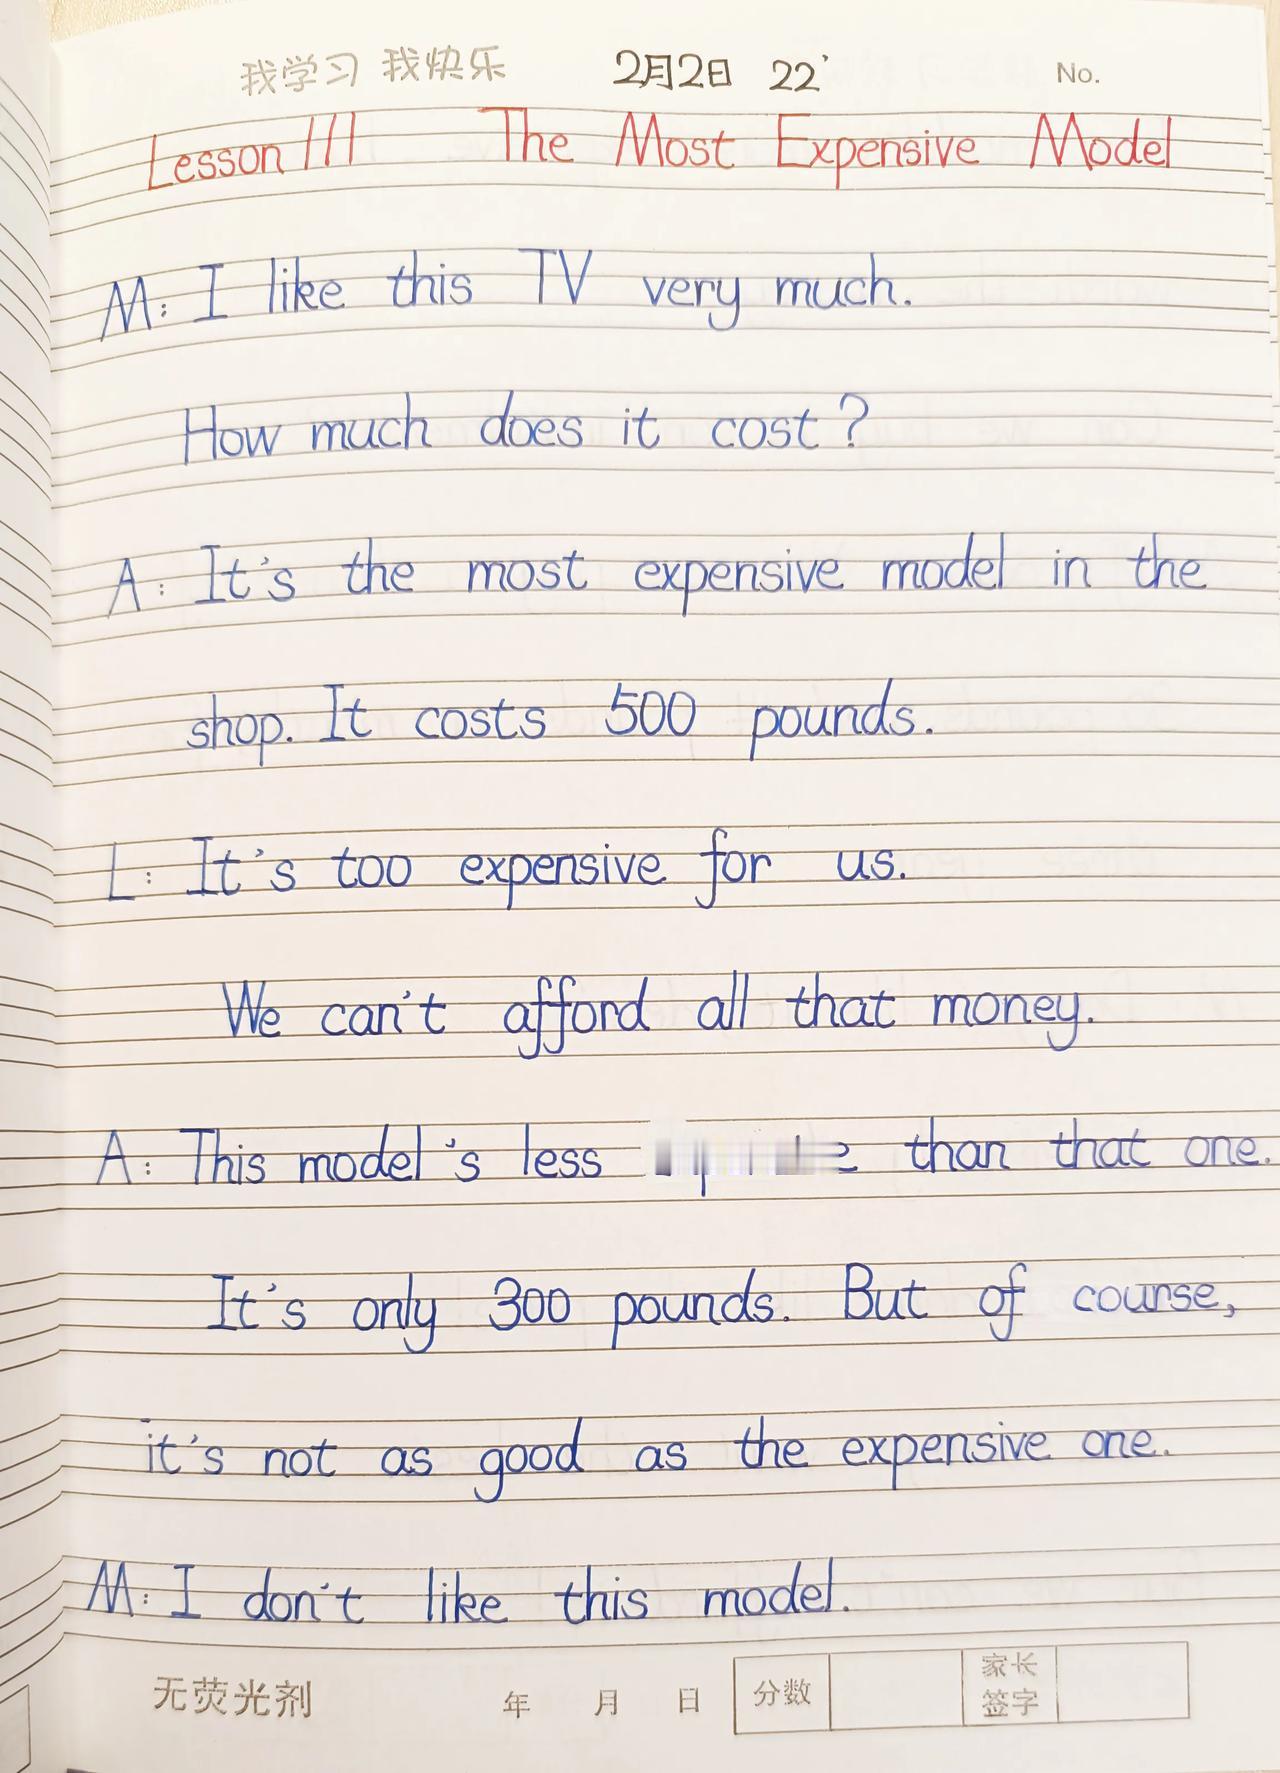 我学习 我快乐 2月2日 22' No.
Lesson 111 The Most Expensive Model
M: I like this TV very much.
How much does it cost?
A: It's the most expensive model in the
shop. It costs 500 pounds.
L: It's too expensive for us.
We can't afford all that money.
A: This model's less than that one.
It's only 300 pounds. But of course,
it's not as good as the expensive one.
M: I don't like this model.
无荧光剂 年 月 日 分数 家长签字